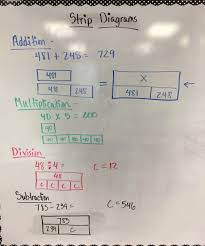 Strip Diagrams
Addition -
481 + 248 = 729
481
481 248
=
X
481 248
Multiplication -
40 x 5 = 200
40
40 40 40 40 40
Division
48 ÷ 4 = C = 12
48
C C C C
Subtraction
785 - 239 = C = 546
785
239 C